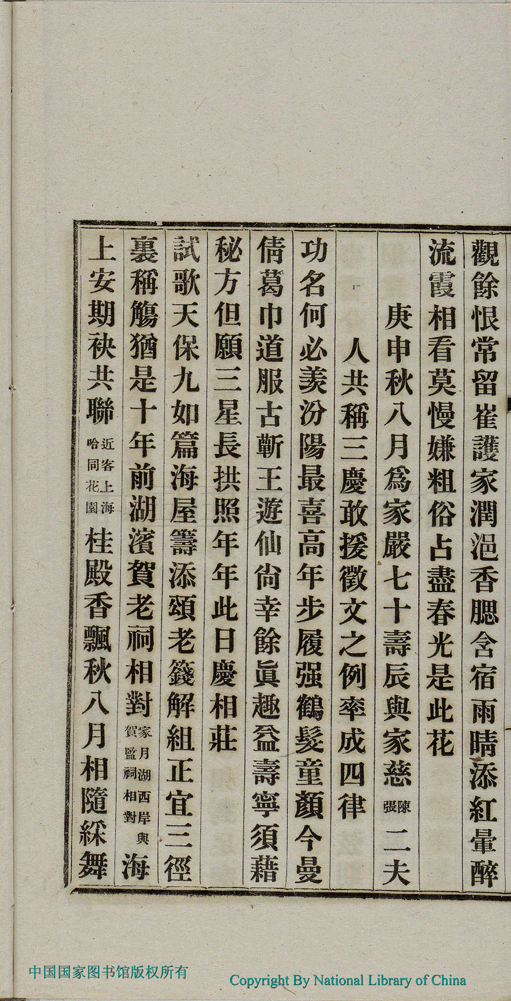 觀餘恨常留崔護家潤浥香腮含宿雨晴添紅暈醉
流霞相看莫慢嫌粗俗占盡春光是此花
庚申秋八月爲家嚴七十壽辰與家慈陳張二夫
人共稱三慶敢援徵文之例率成四律
功名何必羨汾陽最喜高年步履强鶴髮童顏今曼
倩葛巾道服古蘄王遊仙尙幸餘眞趣益壽寧須藉
秘方但願三星長拱照年年此日慶相莊
試歌天保九如篇海屋籌添頌老籛解組正宜三徑
裏稱觴猶是十年前湖濱賀老祠相對家月湖西岸與賀監祠相對海
上安期袂共聯近客上海哈同花園桂殿香飄秋八月相隨綵舞
中国国家图书馆版权所有
Copyright By National Library of China